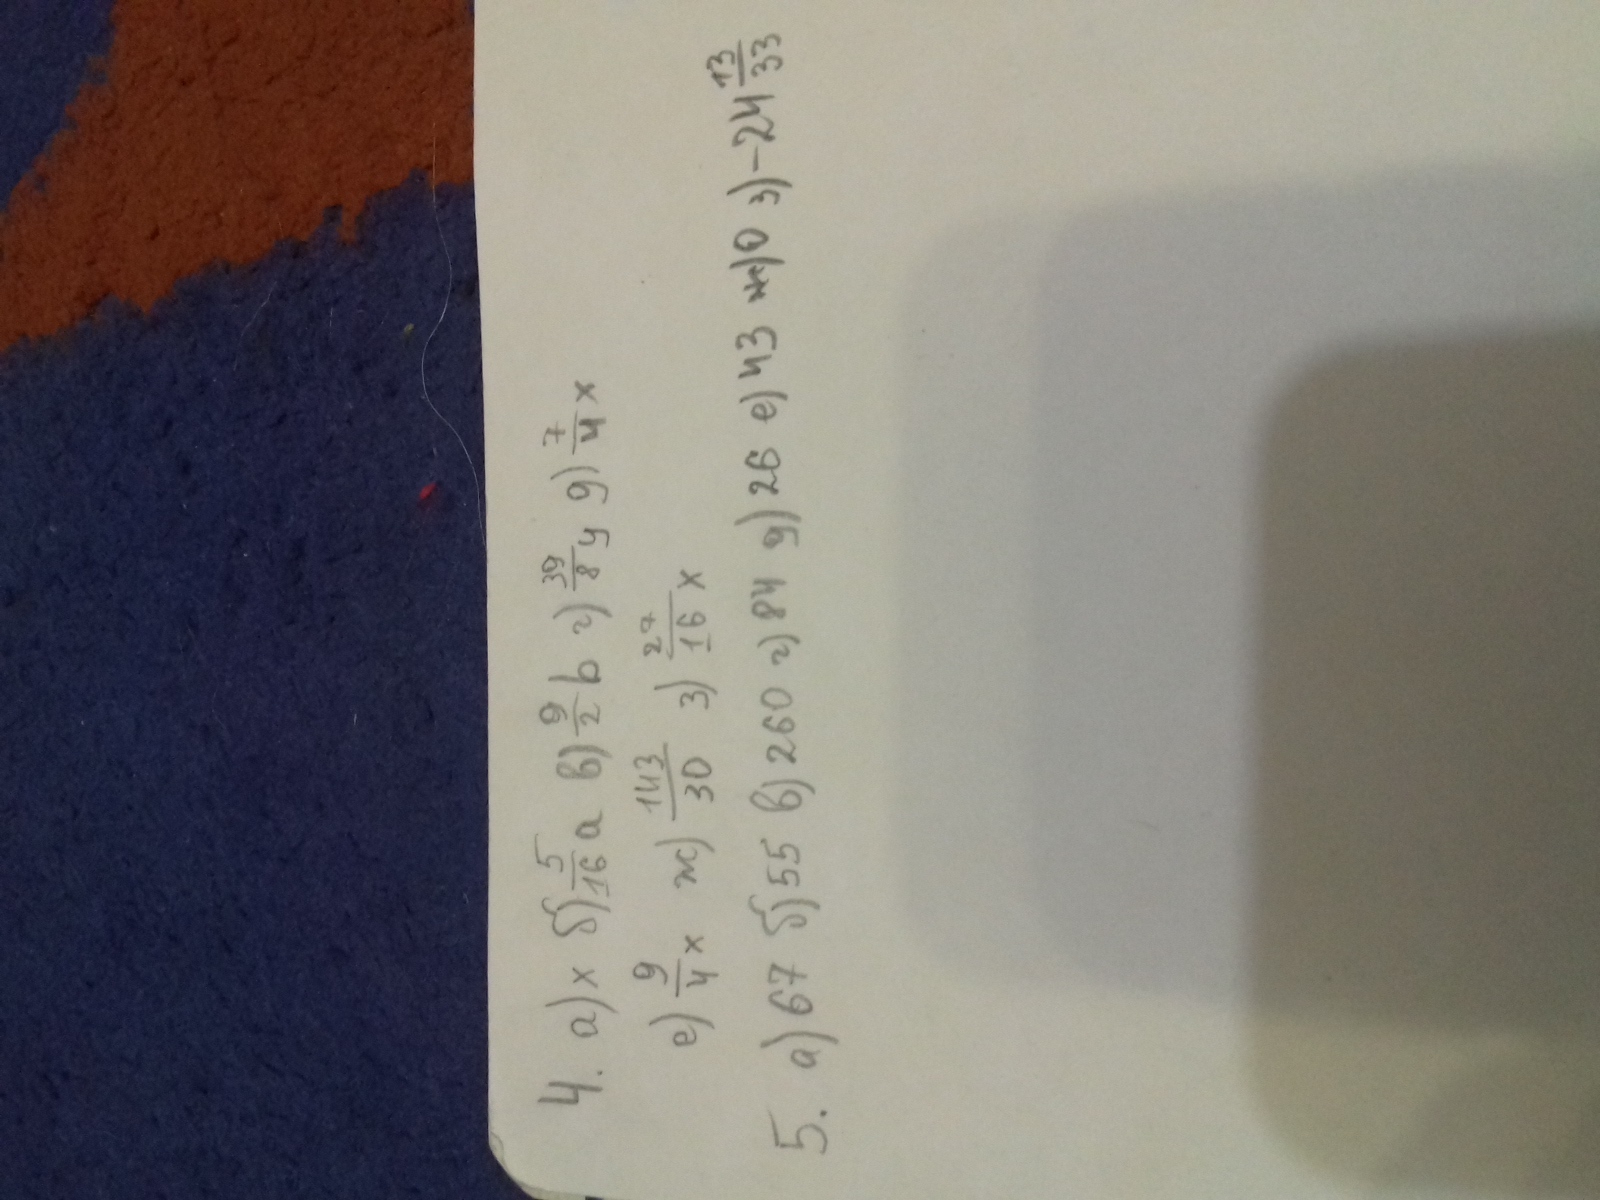 4. а) x б) 5/16 a в) 9/2 b г) 39/8 y д) 7/4 x
е) 9/4 x ж) 143/30 з) 27/16 x
5. а) 67 б) 55 в) 260 г) 84 д) 26 е) 43 ж) 0 з) -24 13/33